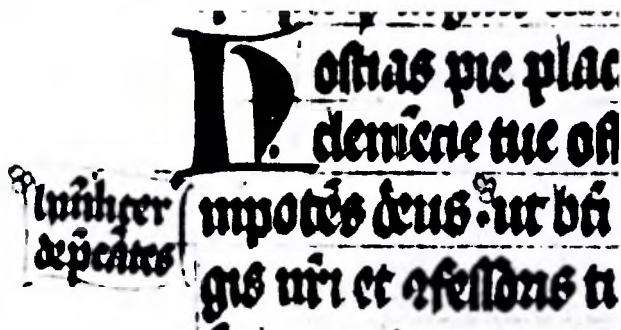 Hostias pie plac
clemēcie tue off
mpotēs deus ut bti
gis nr̄i et ꝯfessoris ti
humilit̄er
dep̄cātes